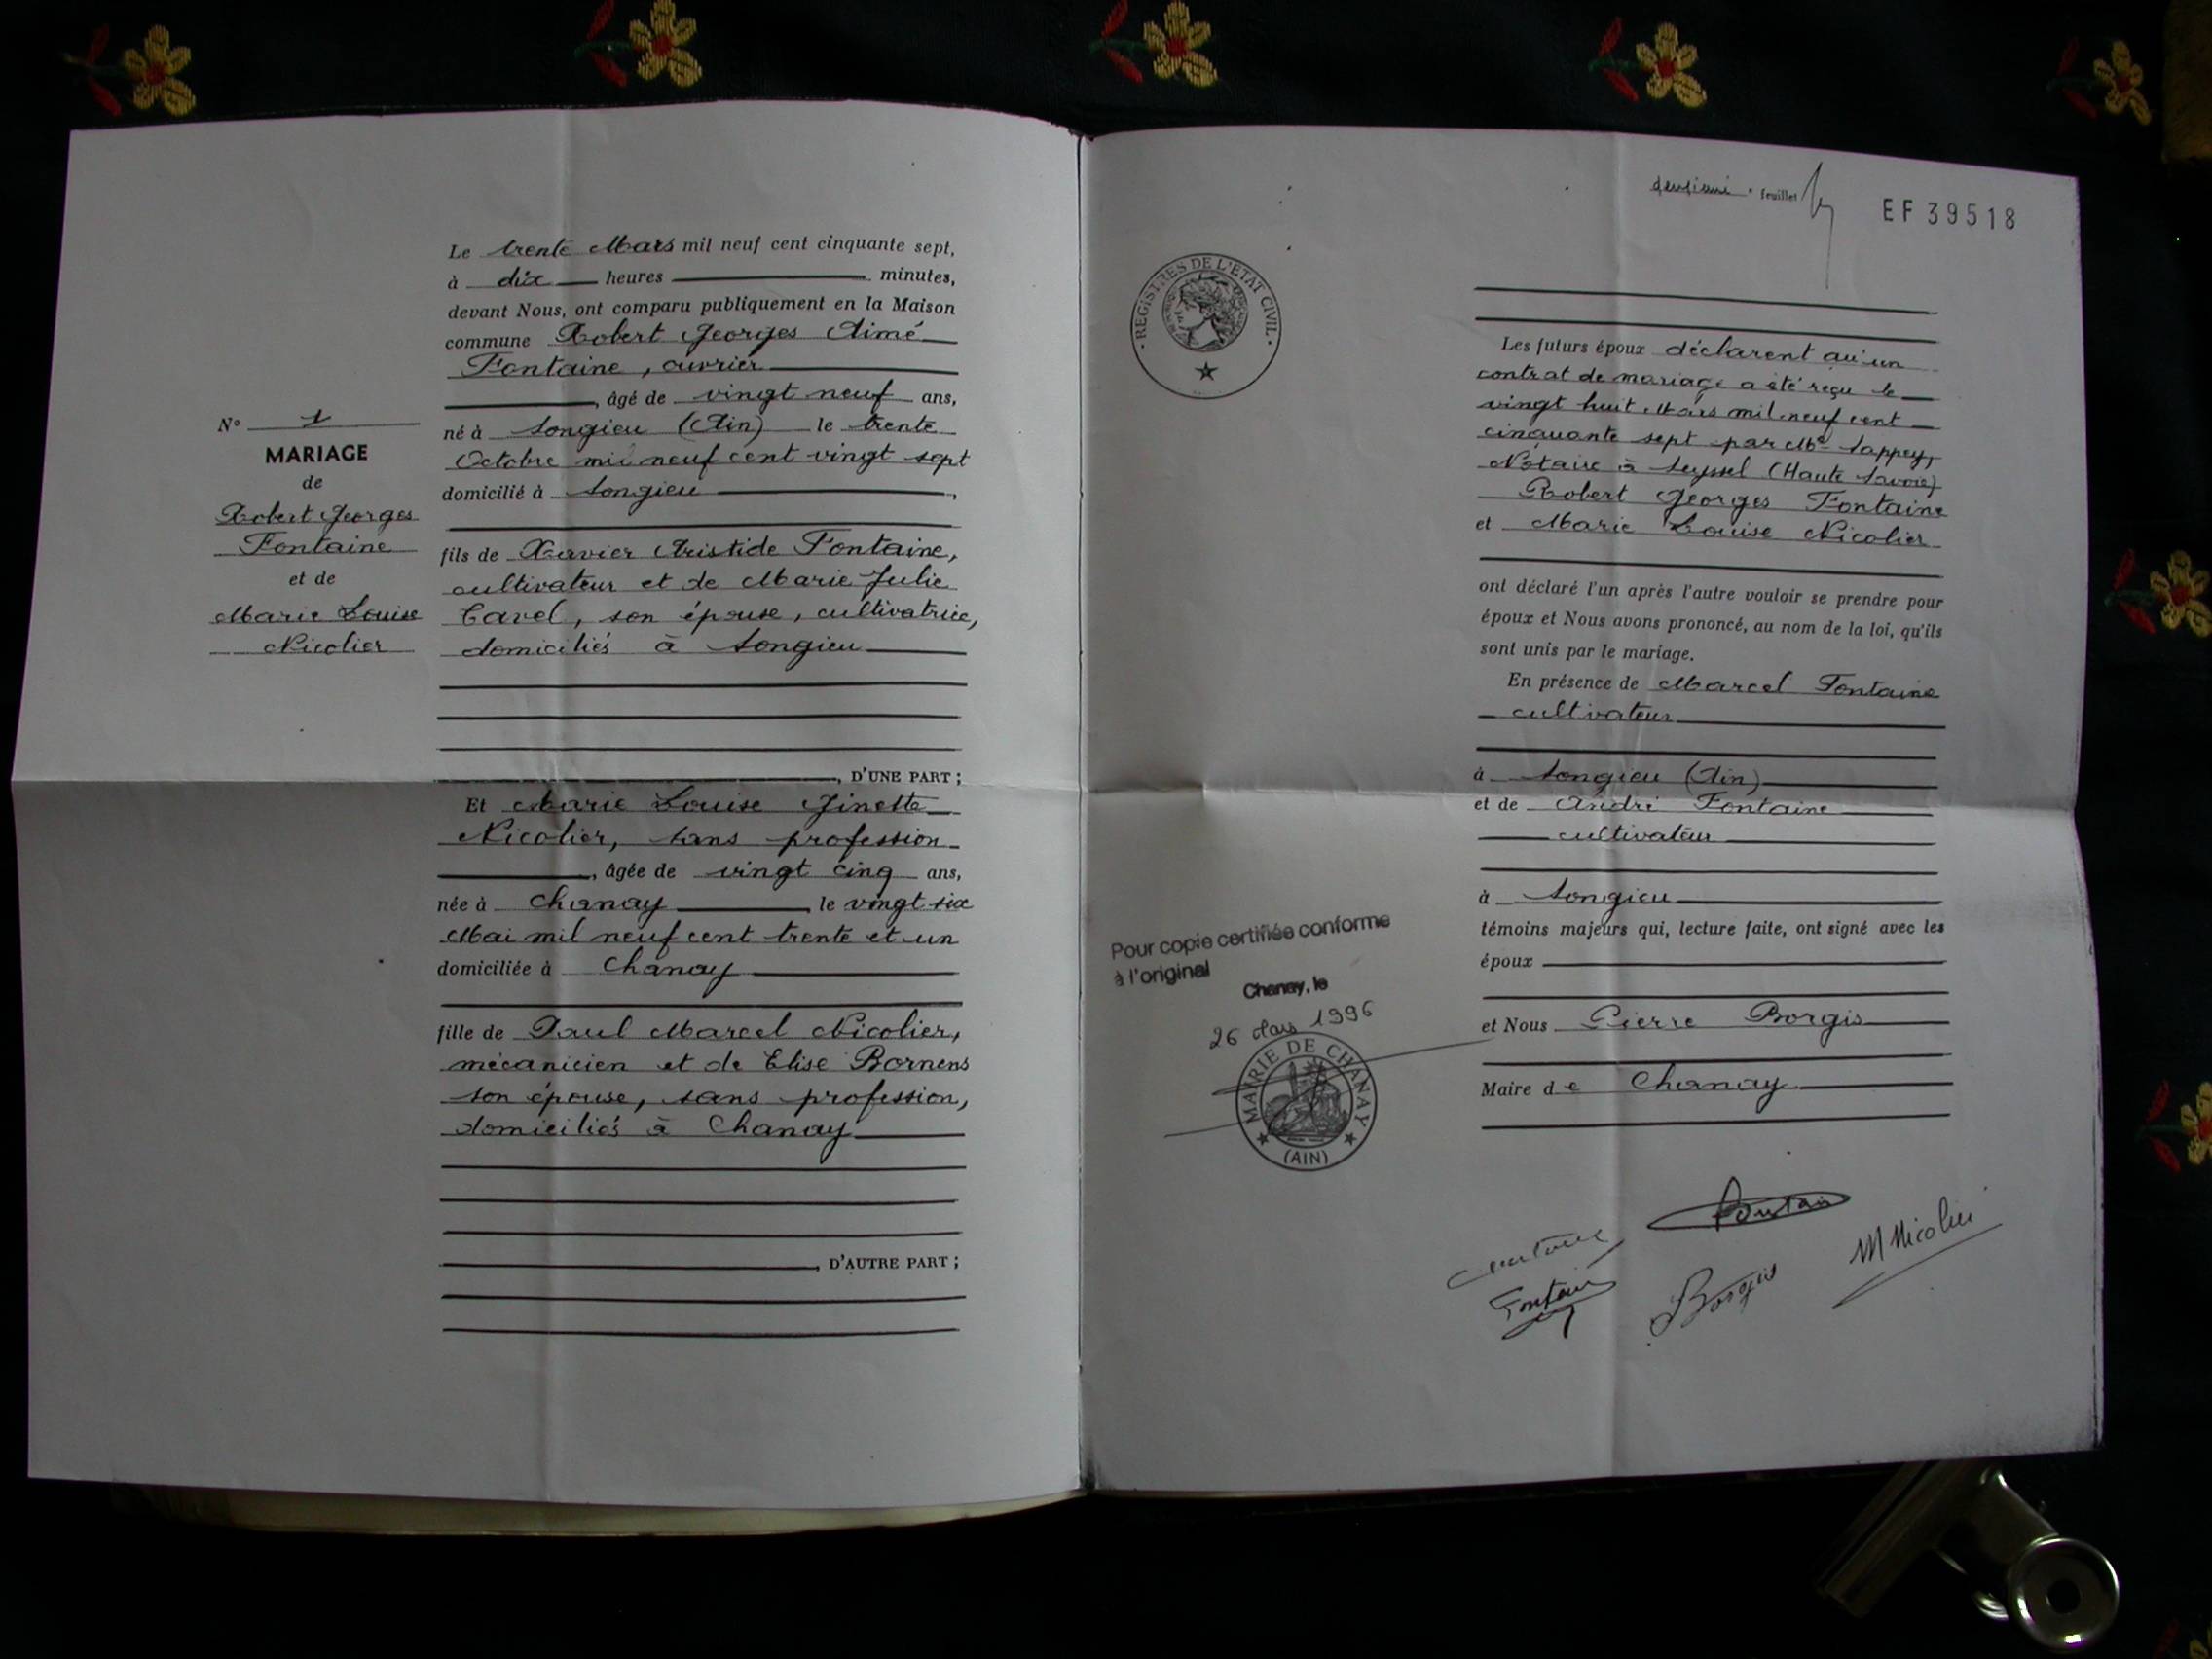 N° 1
MARIAGE
de
Robert Georges
Fontaine
et de
Marie Louise
Nicolier
Le trente Mars mil neuf cent cinquante sept,
à dix heures minutes,
devant Nous, ont comparu publiquement en la Maison
commune Robert Georges Aimé
Fontaine, ouvrier
, âgé de vingt neuf ans,
né à Songieu (Ain) le trente
Octobre mil neuf cent vingt sept
domicilié à Songieu,
fils de Xavier Aristide Fontaine,
cultivateur et de Marie Julie
Cavel, son épouse, cultivatrice,
domiciliés à Songieu
, D'UNE PART ;
Et Marie Louise Ginette
Nicolier, sans profession
, âgée de vingt cinq ans,
née à Chanay, le vingt six
Mai mil neuf cent trente et un
domiciliée à Chanay
fille de Paul Marcel Nicolier,
mécanicien et de Elise Bornens
son épouse, sans profession,
domiciliés à Chanay
, D'AUTRE PART ;
deuxième feuillet
EF 39518
REGISTRES DE L'ETAT CIVIL
Les futurs époux déclarent qu'un
contrat de mariage a été reçu le
vingt huit Mars mil neuf cent
cinquante sept par Me Sappey,
Notaire à Seyssel (Haute Savoie)
Robert Georges Fontaine
et Marie Louise Nicolier
ont déclaré l'un après l'autre vouloir se prendre pour
époux et Nous avons prononcé, au nom de la loi, qu'ils
sont unis par le mariage.
En présence de Marcel Fontaine
cultivateur
à Songieu (Ain)
et de André Fontaine
cultivateur
à Songieu
témoins majeurs qui, lecture faite, ont signé avec les
époux
et Nous Pierre Borgis
Maire de Chanay
Pour copie certifiée conforme
à l'original
Chanay, le
26 Mars 1996
MAIRIE DE CHANAY
(AIN)
Fontaine
Borgis